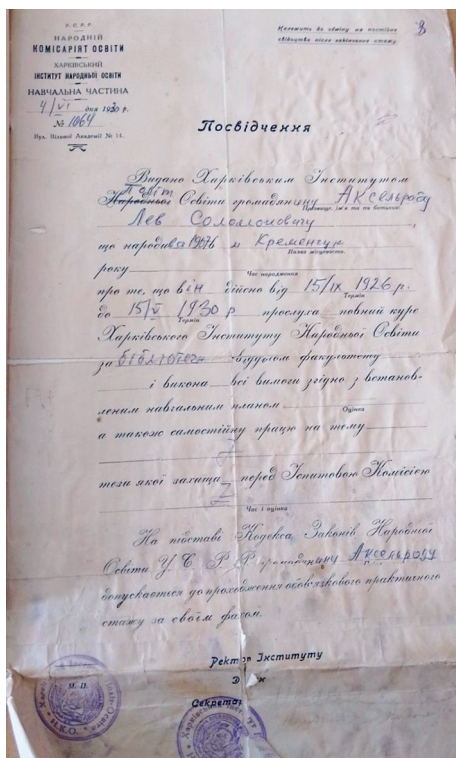 У.С.Р.Р.
НАРОДНІЙ
КОМІСАРІЯТ ОСВІТИ
ХАРКІВСЬКИЙ
ІНСТИТУТ НАРОДНЬОЇ ОСВІТИ
НАВЧАЛЬНА ЧАСТИНА
4/VI дня 1930 р.
№ 1064
Вул. Вільної Академії № 14.
Належить до обміну на постійне
свідоцтво після закінчення стажу.
8
Посвідчення
Видано Харківським Інститутом
Народньої Освіти громадянину Аксельроду
Прізвище, ім'я та по батькові
Лев Соломонович
що народивс в м Кременчук
Назва місцевости.
року
Час народження
про те, що він дійсно від 15/IX 1926 р.
Термін
до 15/V 1930 р прослуха повний курс
Термін
Харківського Інституту Народньої Освіти
за відділом факультету
і викона всі вимоги згідно з встанов-
леним навчальним планом
Оцінка
а також самостійну працю на тему
тези якої захища перед Іспитовою Комісією
Час і оцінка
На підставі Кодекса Законів Народньої
Освіти У С Р Р громадянину Аксельроду
допускається до проходження обов'язкового практичного
стажу за своїм фахом.
Ректор Інституту
Секретар
М. П.
Н.К.О.